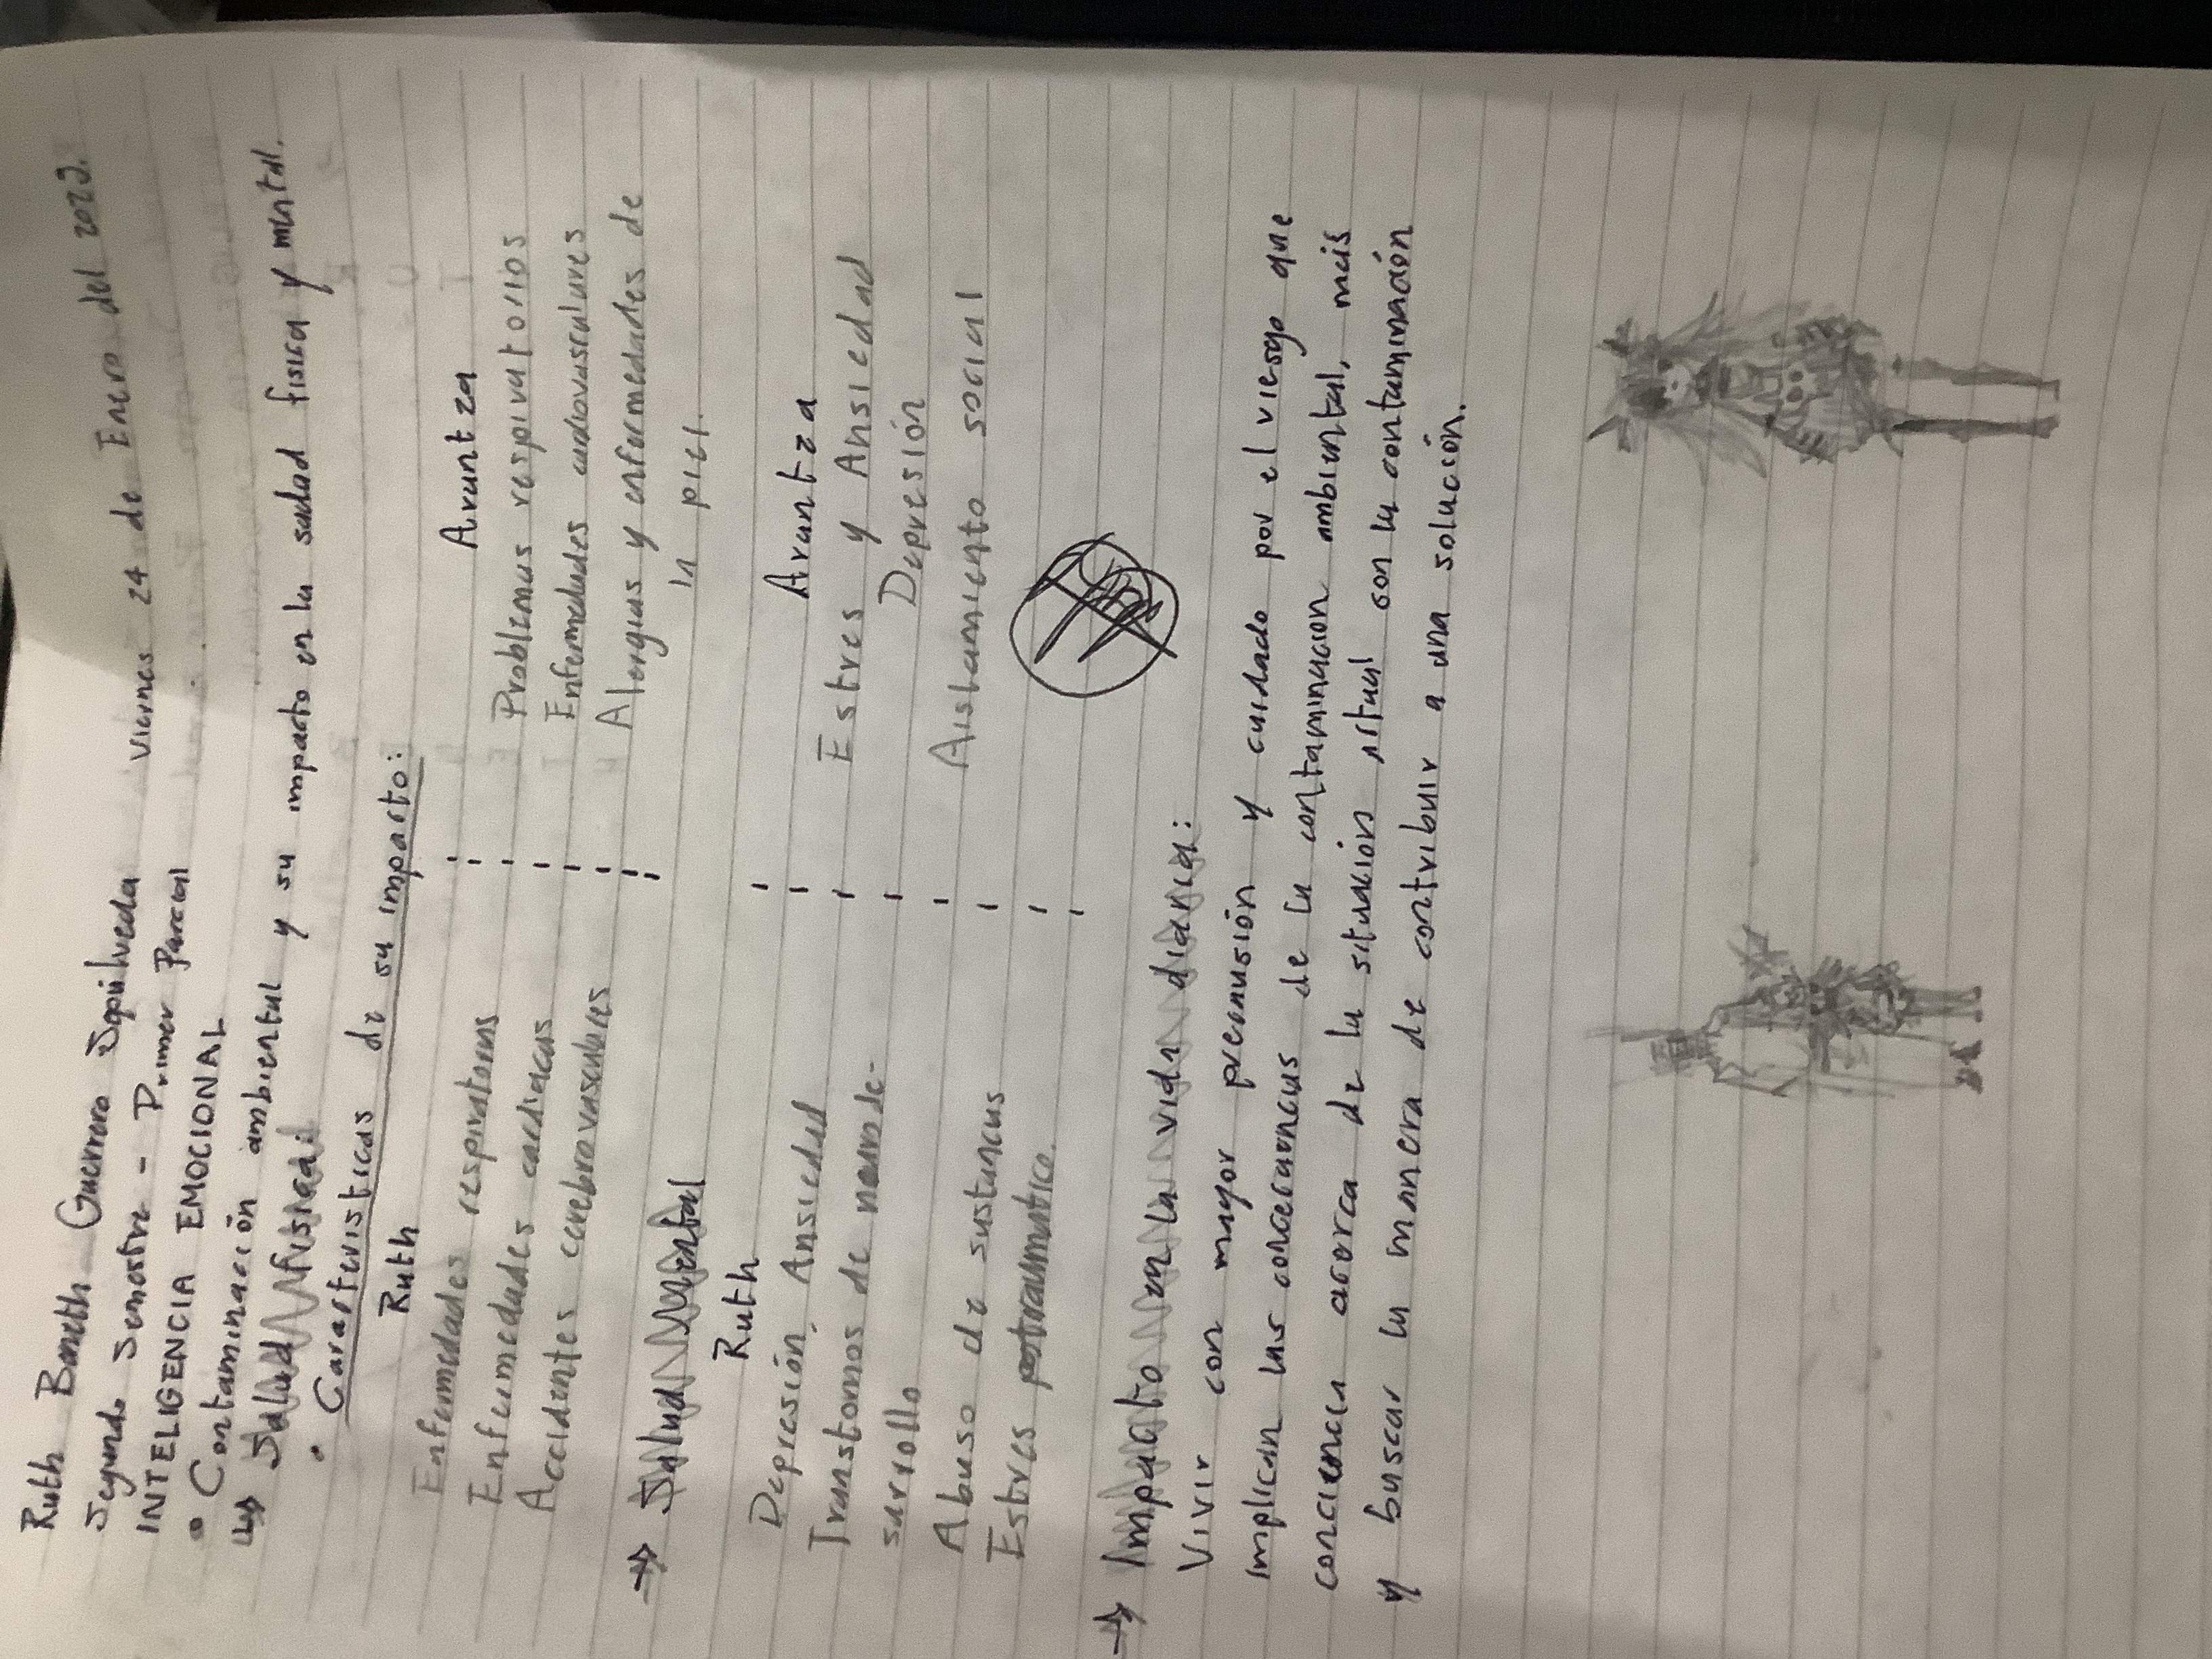 Ruth Baneth Guerrero Sepúlveda
Viernes 24 de Enero del 2022.
Segundo Semestre - Primer Parcial
INTELIGENCIA EMOCIONAL
• Contaminación ambiental y su impacto en la salud fisica y mental.
Salud fisica:
• Caracteristicas de su impacto:
Ruth
Enfermedades respiratorias
Enfermedades cardiacas
Accidentes cerebrovasculares
Arantza
Problemas respiratorios
Enfermedades cardiovasculares
Alergias y enfermedades de
la piel.
→ Salud Mental
Ruth
Depresión, Ansiedad
Transtornos de neurode-
sarrollo
Abuso de sustancias
Estres postraumatico.
Arantza
Estres y Ansiedad
Depresión
Aislamiento social
→ Impacto en la vida diaria:
Vivir con mayor precausión y cuidado por el riesgo que
implican las concecuencias de la contaminacion ambiental, más
conciencia acerca de la situación actual con la contaminación
y buscar la manera de contribuir a una solución.